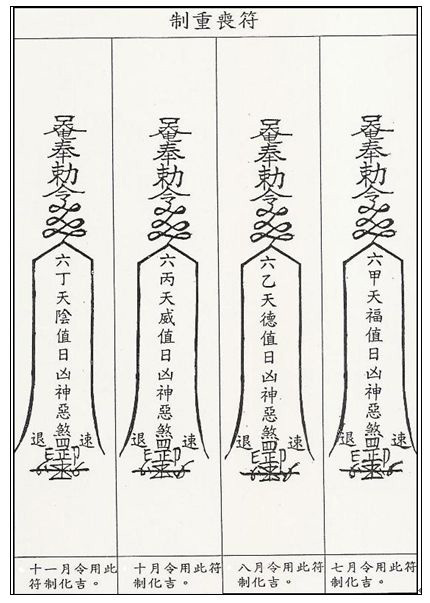 制重喪符
奉勅令
六甲天福值日凶神惡煞
速退
七月令用此符
制化吉。
奉勅令
六乙天德值日凶神惡煞
速退
八月令用此符
制化吉。
奉勅令
六丙天威值日凶神惡煞
速退
十月令用此符
制化吉。
奉勅令
六丁天陰值日凶神惡煞
速退
十一月令用此
符制化吉。